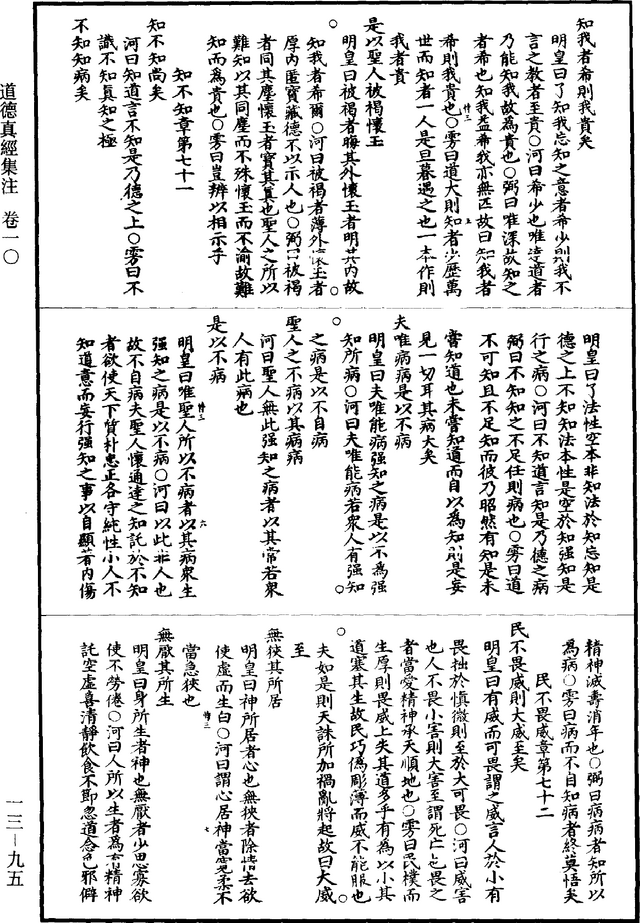 知我者希則我貴矣
明皇曰了知我忘知之意者希少則我不
言之教者至貴○河曰希少也唯達道者
乃能知我故為貴也○弼曰唯深故知之
者希也知我益希我亦無匹故曰知我者
希則我貴也○雱曰道大則知者少歷萬
世而知者一人是旦暮遇之也一本作則
我者貴
是以聖人被褐懷玉
明皇曰被褐者晦其外懷玉者明其内故
知我者希爾○河曰被褐者薄外懷玉者
厚内匿寶藏德不以示人也○弼曰被褐
者同其塵懷玉者寶其真也聖人之所以
難知以其同塵而不殊懷玉而不渝故難
知而為貴也○雱曰豈辨以相示乎
知不知章第七十一
知不知尚矣
河曰知道言不知是乃德之上○雱曰不
識不知真知之極
不知知病矣
明皇曰了法性空本非知法於知忘知是
德之上不知知法本性是空於知強知是
行之病○河曰不知道言知是乃德之病
弼曰不知知之不足任則病也○雱曰道
不可知且不足知而彼乃昭然有知是未
嘗知道也未嘗知道而自以為知則是妄
見一切耳其病大矣
夫唯病病是以不病
明皇曰夫唯能病強知之病是以不為強
知所病○河曰夫唯能病若衆人有強知
之病是以不自病
聖人之不病以其病病
河曰聖人無此強知之病者以其常若衆
人有此病也
是以不病
明皇曰唯聖人所以不病者以其病衆生
強知之病是以不病○河曰以此非人也
故不自病夫聖人懷通達之知託於不知
者欲使天下質朴忠正各守純性小人不
知道意而妄行強知之事以自顯著内傷
精神減壽消年也○弼曰病病者知所以
為病○雱曰病而不自知病者終莫悟矣
民不畏威章第七十二
民不畏威則大威至矣
明皇曰有威而可畏謂之威言人於小有
畏拙於慎微則至於大可畏○河曰威害
也人不畏小害則大害至謂死亡也畏之
者當愛精神承天順地也○雱曰民樸而
生厚則畏威上失其道多乎有為以小其
道塞其生故民巧偽彫薄而威不能服也
夫如是則天誅所加禍亂將起故曰大威
至
無狹其所居
明皇曰神所居者心也無狹者除情去欲
使虛而生白○河曰謂心居神當寬柔不
當急狹也
無厭其所生
明皇曰身所生者神也無厭者少思寡欲
使不勞倦○河曰人所以生者為有精神
託空虛喜清靜飲食不節忽道念色邪僻
道德真經集注　卷一〇
一三－九五